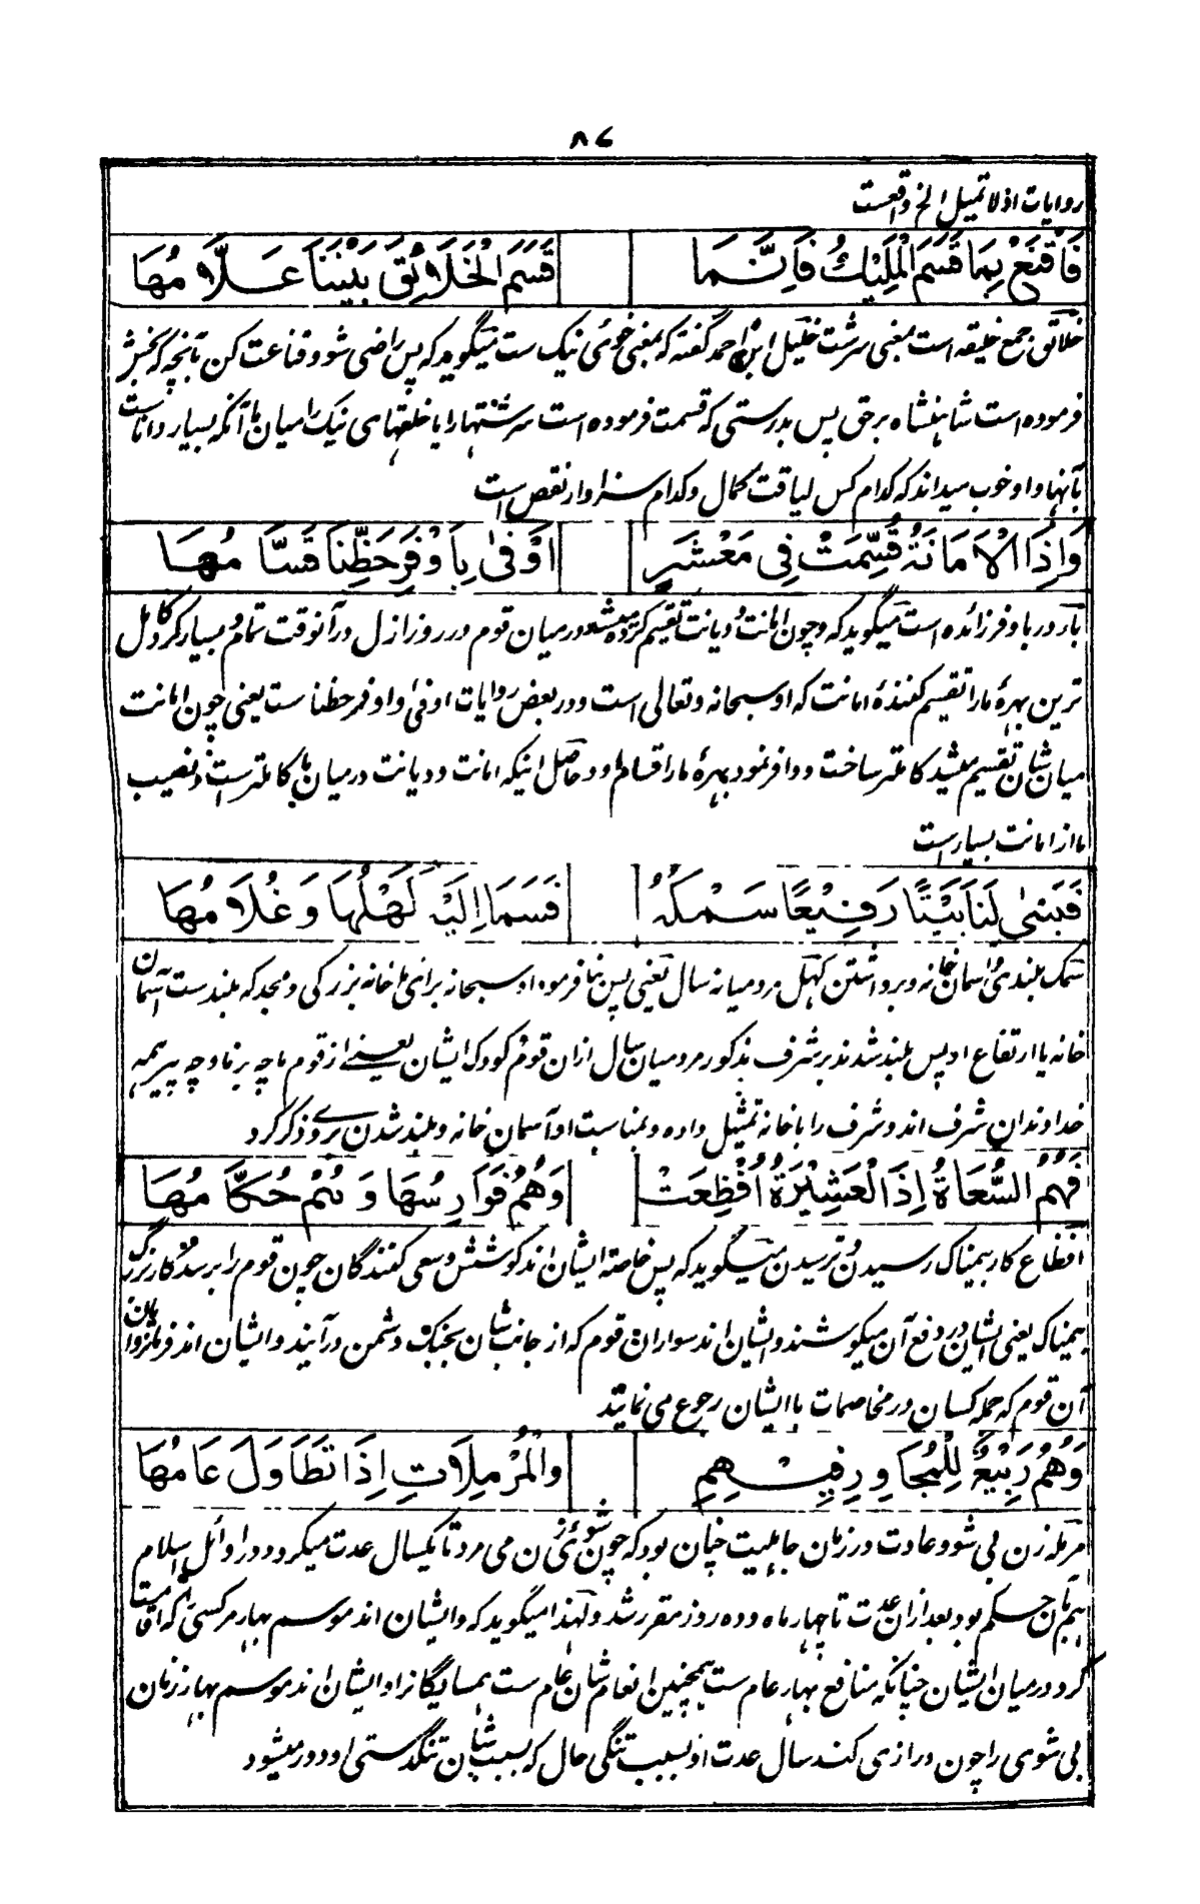 ٨٧
روایات اذلا تمیل الخ واقعست
فَاقْنَعْ بِمَا قَسَمَ الْمَلِيْكُ فَاِنَّمَا قَسَمَ الْخَلَائِقَ بَيْنَنَا عَلَّامُهَا
خلائق جمع خلیقه است بمعنی سرشت خلیل ابن احمد گفته که بمعنی خوئی نیک ست میگوید که پس راضی شو و قناعت کن بآنچه که بخش
فرموده است شاہنشاه برحق پس بدرستی که قسمت فرموده است سرشتها را یا خلقهای نیک را میان ما آنکه بسیار دانا ست
بآنها و او خوب میداند که کدام کس لیاقت کمال و کدام سزاوار نقص است
وَاِذَا الْاَمَانَةُ قُسِّمَتْ فِي مَعْشَرٍ اَوْفٰى بِاَوْفَرِ حَظِّنَا قَسَّامُهَا
باء در باوفر زائده است میگوید که و چون امانت و دیانت تقسیم کرده میشد در میان قوم در روز ازل در آنوقت تمام و بسیار کرد کامل
ترین بهرهٔ ما را تقسیم کنندهٔ امانت که او سبحانه و تعالی است و در بعض روایات اوفی و اوفر حظنا ست یعنی چون امانت
میان شان تقسیم میشد کاملتر ساخت و وافر نمود بهرهٔ ما را قسام او و حاصل اینکه امانت و دیانت درمیان ما کاملتر است و نصیب
ما از امانت بسیار است
فَبَنٰى لَنَا بَيْتًا رَفِيْعًا سَمْكُهٗ فَسَمَا اِلَيْهِ كَهْلُهَا وَغُلَامُهَا
سمک بلندی و آسمان خانه و برداشتن کهل مرد میانه سال یعنی پس بنا فرمود او سبحانه برای ما خانه بزرگی و مجد که بلند ست آسمان
خانه یا ارتفاع او پس بلند شدند بر شرف مذکور مرد میان سال ازان قوم و کودک ایشان یعنے از قوم ما چه برنا و چه پیر همه
خداوندان شرف اند و شرف را با خانه تمثیل داده و بمناسبت او آسمان خانه و بلند شدن برو ذکر کرد
فَهُمُ السُّعَاةُ اِذَا الْعَشِيْرَةُ اُفْظِعَتْ وَهُمُ فَوَارِسُهَا وَهُمْ حُكَّامُهَا
افظاع کار بیمناک رسیدن و ترسیدن میگوید که پس خاصة ایشان اند کوشش و سعی کنندگان چون قوم را برسد کار بزرگ
بیمناک یعنی ایشان در دفع آن میکوشند و ایشان اند سواران قوم که از جانب شان بجنگ دشمن در آیند و ایشان اند فرمانروایان
آن قوم که جمله کسان در مخاصمات با ایشان رجوع می نمایند
وَهُمُ رَبِيْعٌ لِلْمُجَاوِرِ فِيْهِمِ وَالْمُرْمِلَاتِ اِذَا تَطَاوَلَ عَامُهَا
مرمله زن بی شو و عادت در زمان جاہلیت چنان بود که چون شوئی زن می مرد تا یکسال عدت میکرد و در اوائل اسلام
ہم بآن حکم بود بعد ازان عدت تا چهار ماه و ده روز مقرر شد و لهذا میگوید که و ایشان اند موسم بهار مر کسی را که اقامت
کرد درمیان ایشان چنانکه منافع بهار عام ست همچنین انعام شان عام ست همسایگانرا و ایشان اند موسم بهار زنان
بی شوی را چون درازی کند سال عدت او بسبب تنگی حال که بسبب شان تنگدستی او دور میشود